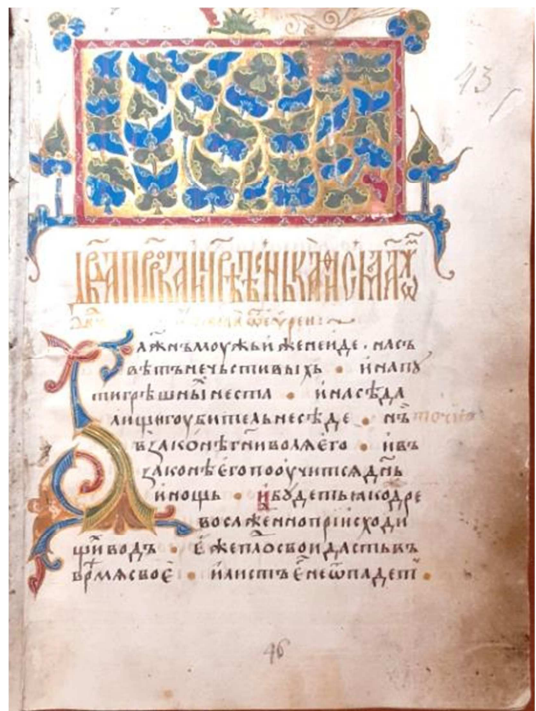 43
аженъ моужь иже не иде · на съ
вѣтъ нечьстивыхь · и на пу
ти грѣшны не ста · и на сѣда
лищи гоубитель не сѣде · нъ точїю
въ законѣ г͠ни волѧ его · и въ
законѣ его пооучитсѧ д͠нь
и нощь · и будеть ꙗко дре
во саженно при исходи
щи водъ · еже пло свои дасть въ
врѣмѧ свое · и листъ е не ѿпадет ·
46